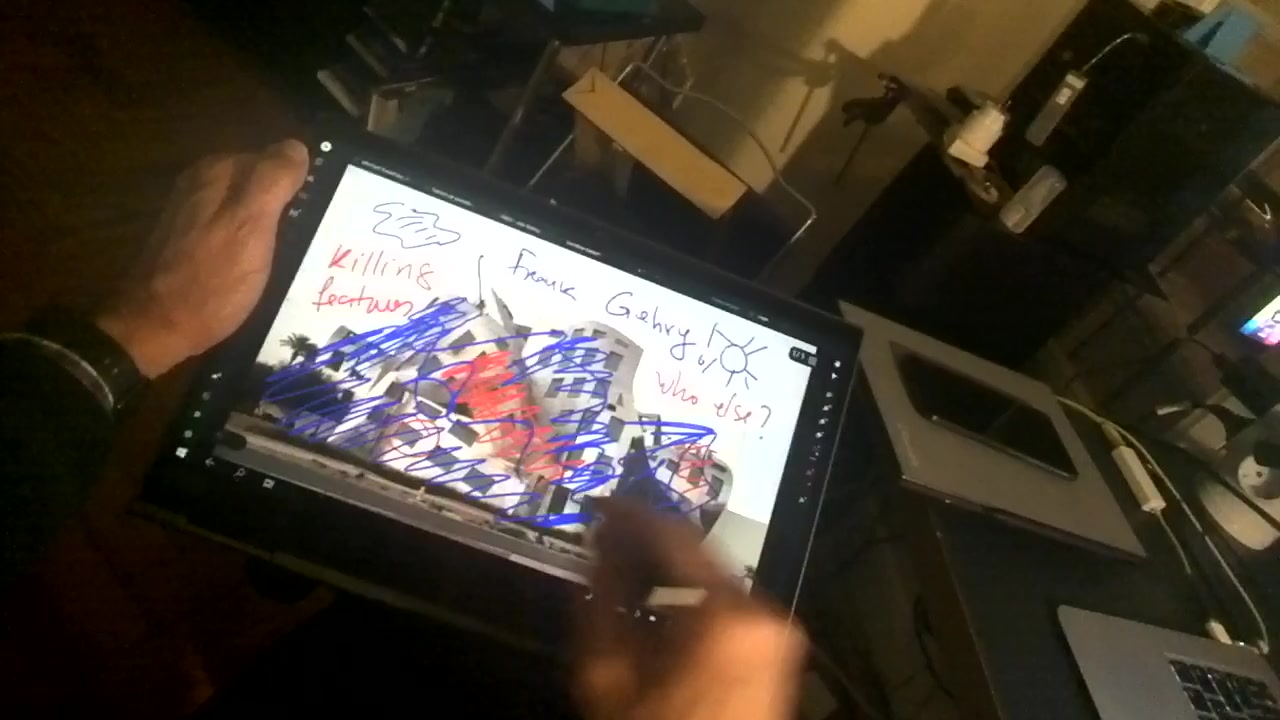 Killing
features
Frank Gehry
who else?
1/1